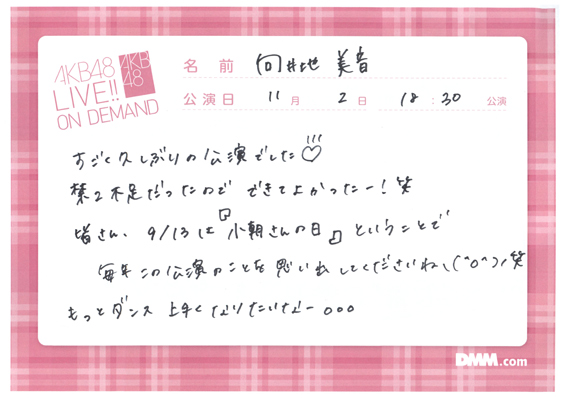 AKB48
LIVE!!
ON DEMAND
AKB
48
名前 向井地 美音
公演日 11月 2日 18:30 公演
すごく久しぶりの公演でした♡
禁2不足だったので できてよかったー!笑
皆さん、9/13は『小朝さんの日』ということで
毎年この公演のことを思い出してくださいね、(^o^)ノ笑
もっとダンス 上手くなりたいなー。。。
DMM.com